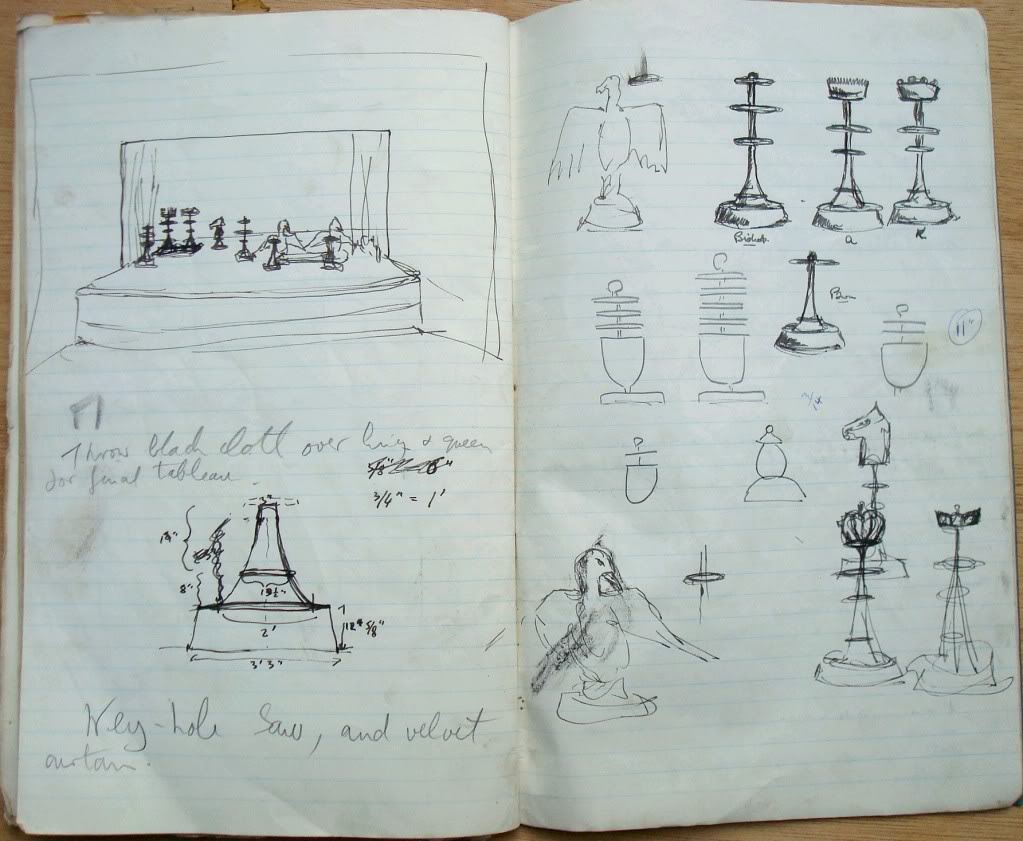 Throw black cloth over king & queen
for final tableau.
3/4" = 1'
3"
8"
13½"
2'
3' 3"
Key-hole Saw, and velvet
curtain.
Bishop
Q
K
Pawn
11"